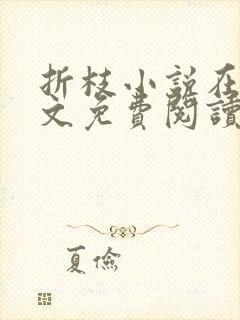 折枝小說在
文免費閱讀
夏儉